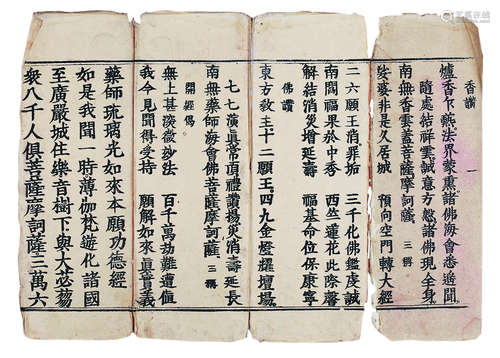 香讚
爐香乍爇法界蒙熏諸佛海會悉遙聞
隨處結祥雲誠意方慇諸佛現全身
南無香雲蓋菩薩摩訶薩 三稱
娑婆非是久居城 預向空門轉大經
一
二六願王消罪垢 三千化佛鑑虔誠
南閻福果於中秀 西竺蓮花此際馨
解結消災增延壽 福基命位保康寧
佛讚
東方教主十二願王四九金燈耀壇場
七七演真常頂禮讚揚災消壽延長
南無藥師海會佛菩薩摩訶薩 三稱
開經偈
無上甚深微妙法 百千萬劫難遭值
我今見聞得受持 願解如來真實義
藥師琉璃光如來本願功德經
如是我聞一時薄伽梵遊化諸國
至廣嚴城住樂音樹下與大苾蒭
衆八千人俱菩薩摩訶薩三萬六